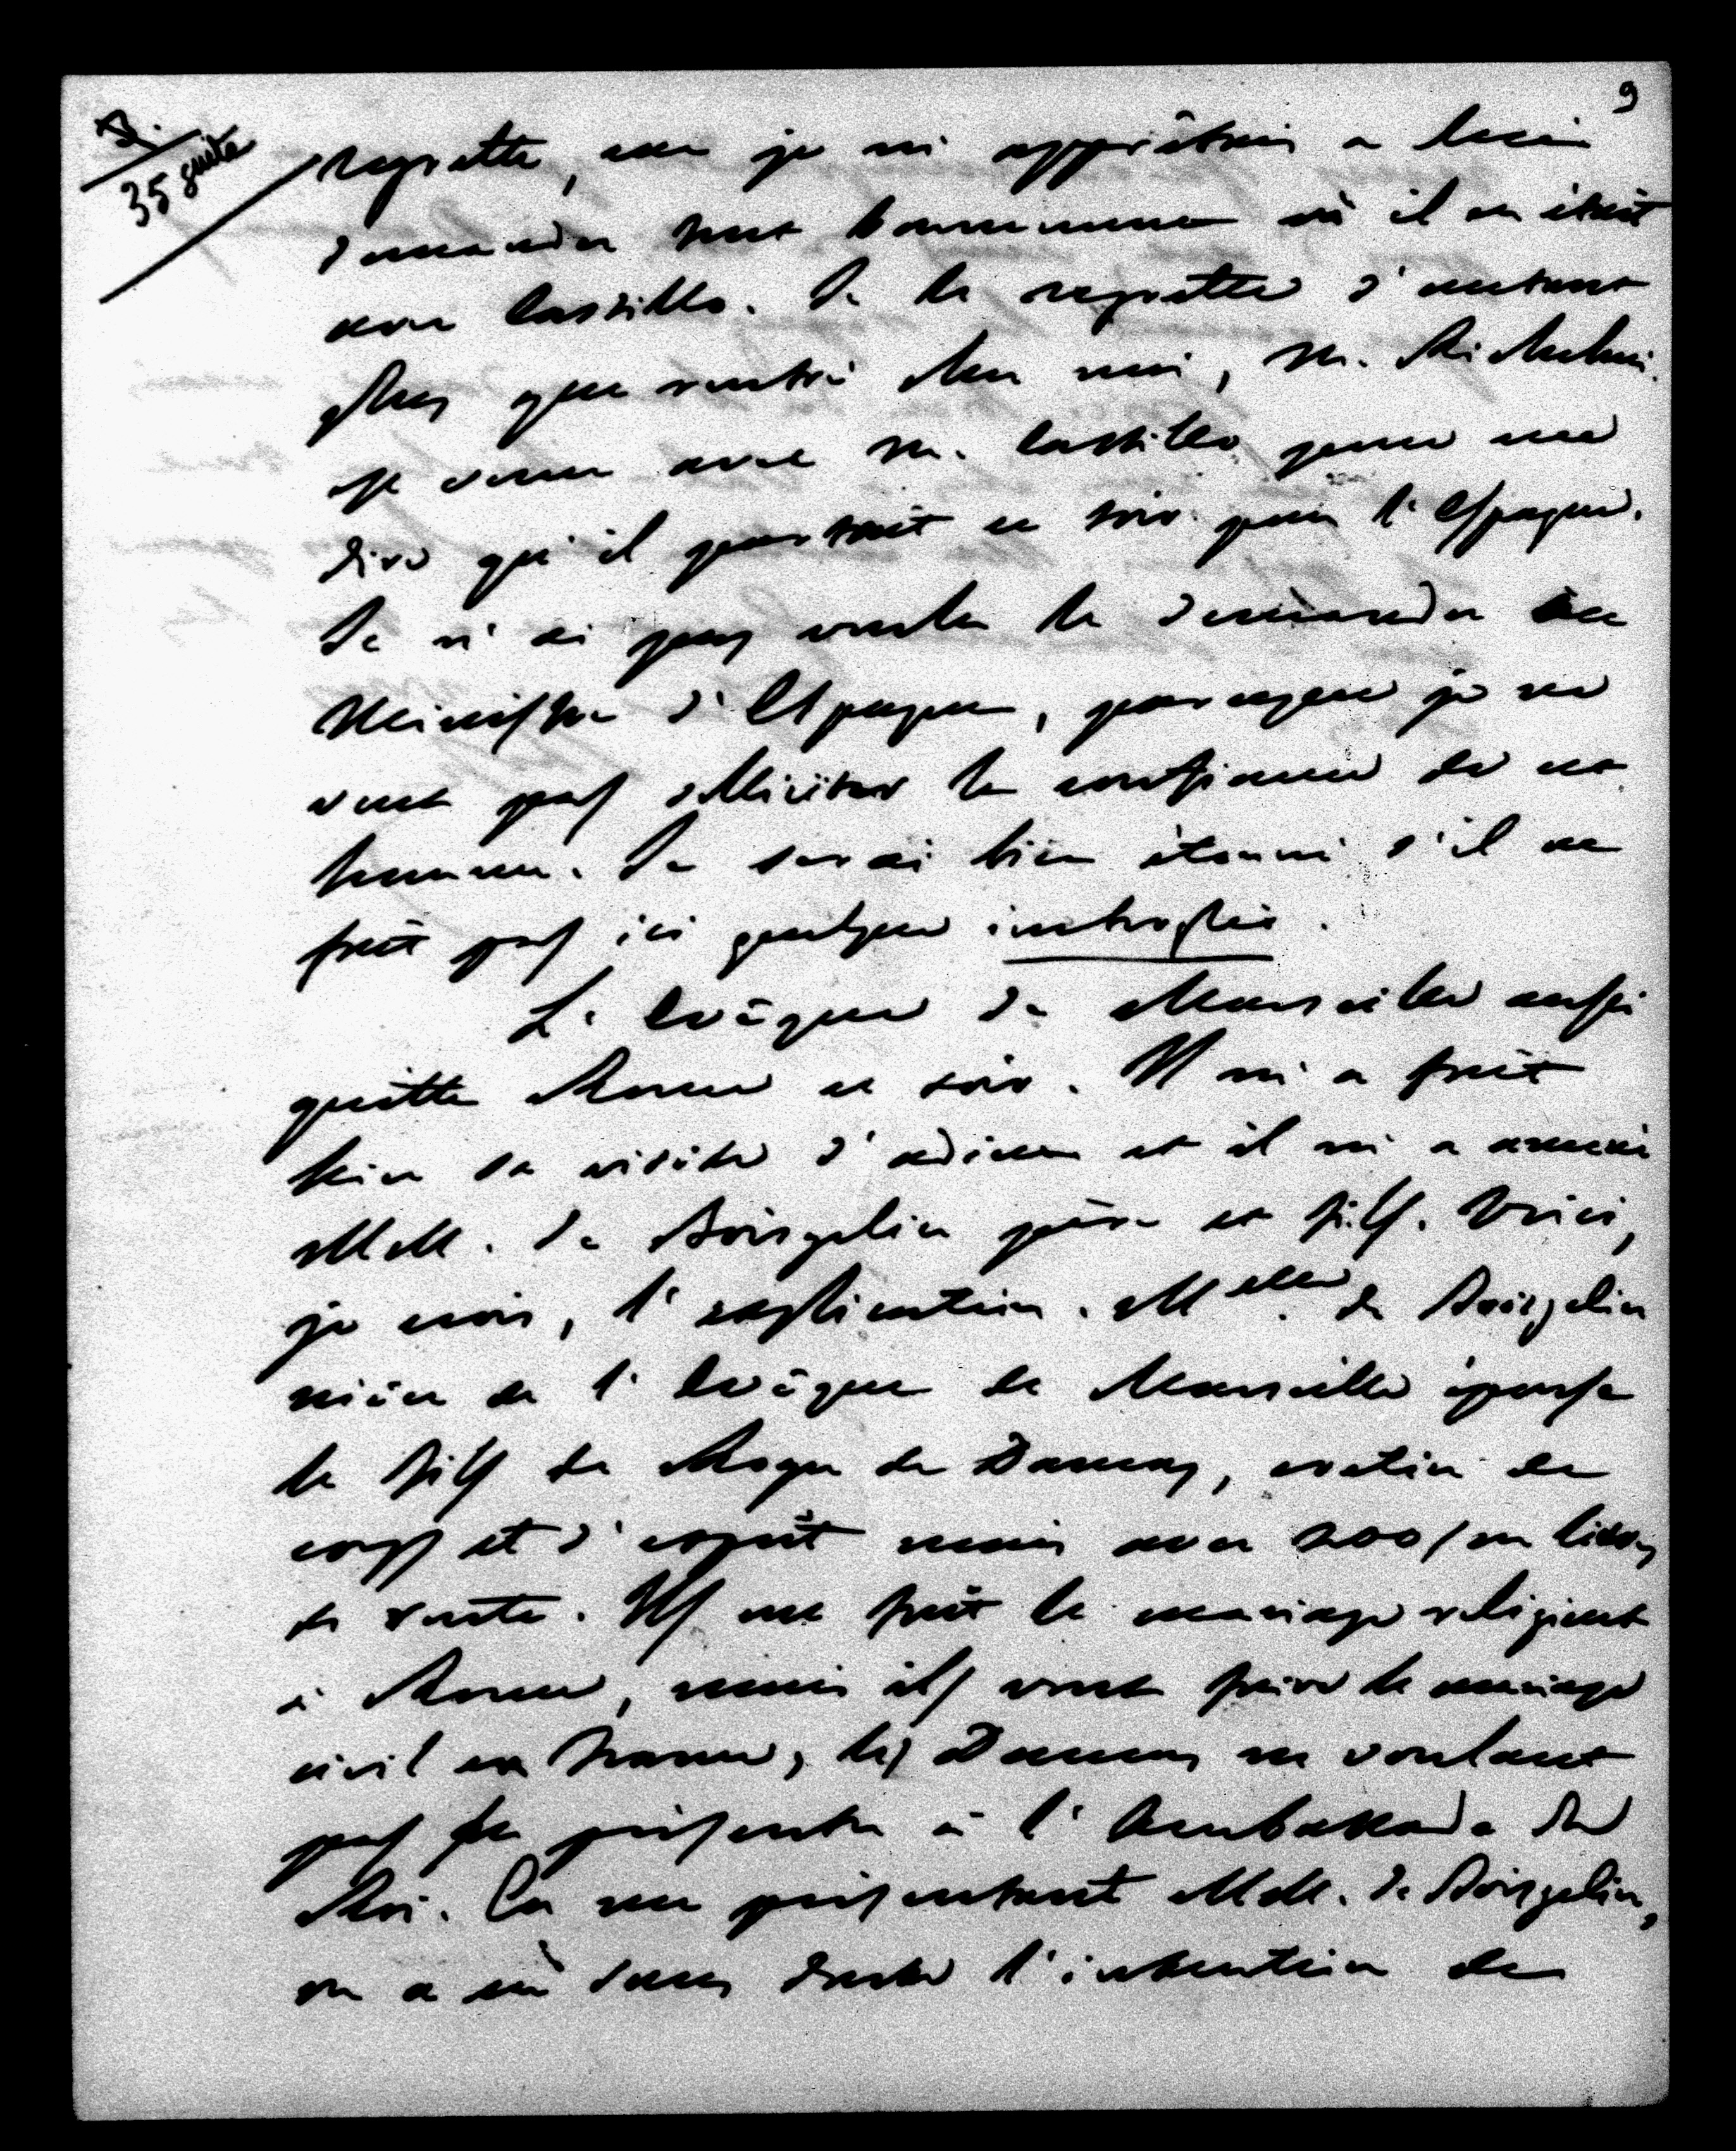 9
35 suite
regrette, car je m'apprêtais à lui
demander tout bonnement où il en était
avec Castillo. Je le regrette d'autant
plus que rentré chez moi, M.
est venu avec M. Castillo pour me
dire qu'il partait ce soir pour l'Espagne.
Je n'ai pas voulu le demander au
Ministre d'Espagne, parceque je ne
veux pas solliciter la confiance de cet
homme. Je serai bien étonné s'il ne
fait pas ici quelque imbroglio.
L'Evêque de Marseille aussi
quitte Rome ce soir. Il m'a fait
hier sa visite d'adieu et il m'a amené
MM. de Boisgelin père et fils. Voici,
je crois, l'explication. Melle de Boisgelin
nièce de l'Evêque de Marseille épouse
le fils de Roger de Damas, crétin de
corps et d'esprit mais avec 200/m livres
de rente. Ils ont fait le mariage religieux
à Rome, mais ils vont faire le mariage
civil en France, les Damas ne voulant
pas se présenter à l'Ambassade du
Roi. En me présentant MM. de Boisgelin,
on a eu sans doute l'intention de